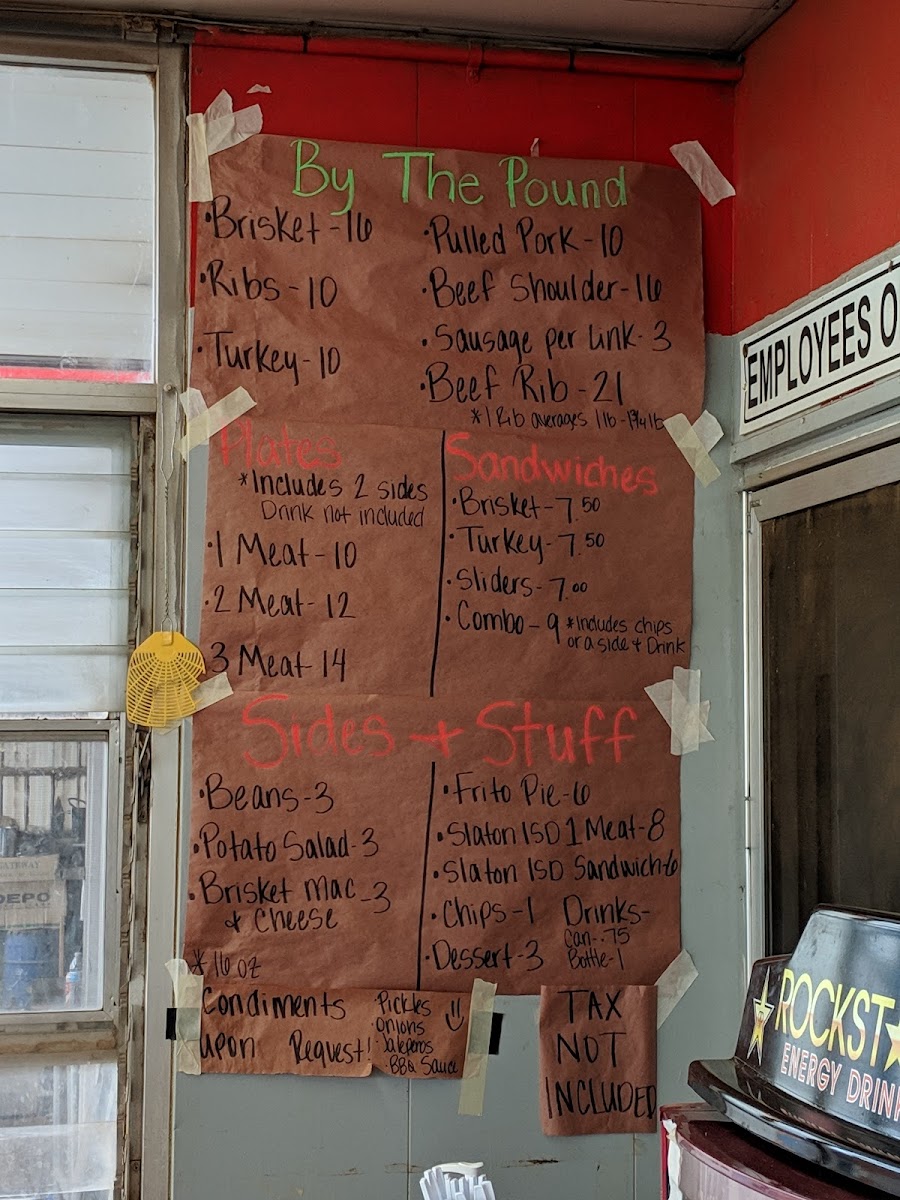 By The Pound
·Brisket-16
·Ribs-10
·Turkey-10
·Pulled Pork-10
·Beef Shoulder-16
·Sausage per link-3
·Beef Rib-21
*1 Rib averages 1lb-1¾lb
Plates
*Includes 2 sides
Drink not included
·1 Meat-10
·2 Meat-12
·3 Meat 14
Sandwiches
·Brisket-7.50
·Turkey-7.50
·Sliders-7.00
·Combo-9 *includes chips
or a side + Drink
Sides + Stuff
·Beans-3
·Potato Salad-3
·Brisket Mac -3
& Cheese
*16 oz
·Frito Pie-6
·Slaton ISD 1 Meat-8
·Slaton ISD Sandwich-6
·Chips-1
·Dessert-3
Drinks-
Can-.75
Bottle-1
Condiments
upon Request!
·Pickles
·Onions
·Jaleperos
·BBQ Sauce
TAX
NOT
INCLUDED
EMPLOYEES O
ROCKST
ENERGY DRIN
DEPO